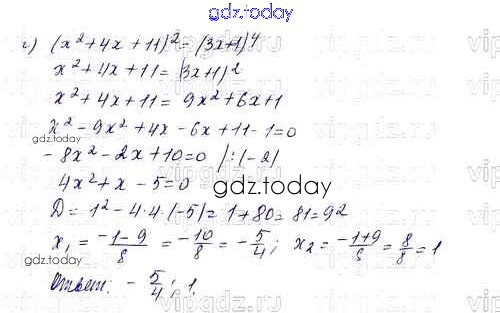 gdz.today
г) (x²+4x+11)²=(3x+1)⁴
x²+4x+11=(3x+1)²
x²+4x+11=9x²+6x+1
gdz.today
x²-9x²+4x-6x+11-1=0
-8x²-2x+10=0 |:(-2)
4x²+x-5=0
gdz.today
D=1²-4·4·(-5)=1+80=81=9²
x₁=(-1-9)/8=-10/8=-5/4; x₂=(-1+9)/8=8/8=1
gdz.today
Ответ: -5/4; 1.
vipgdz.ru